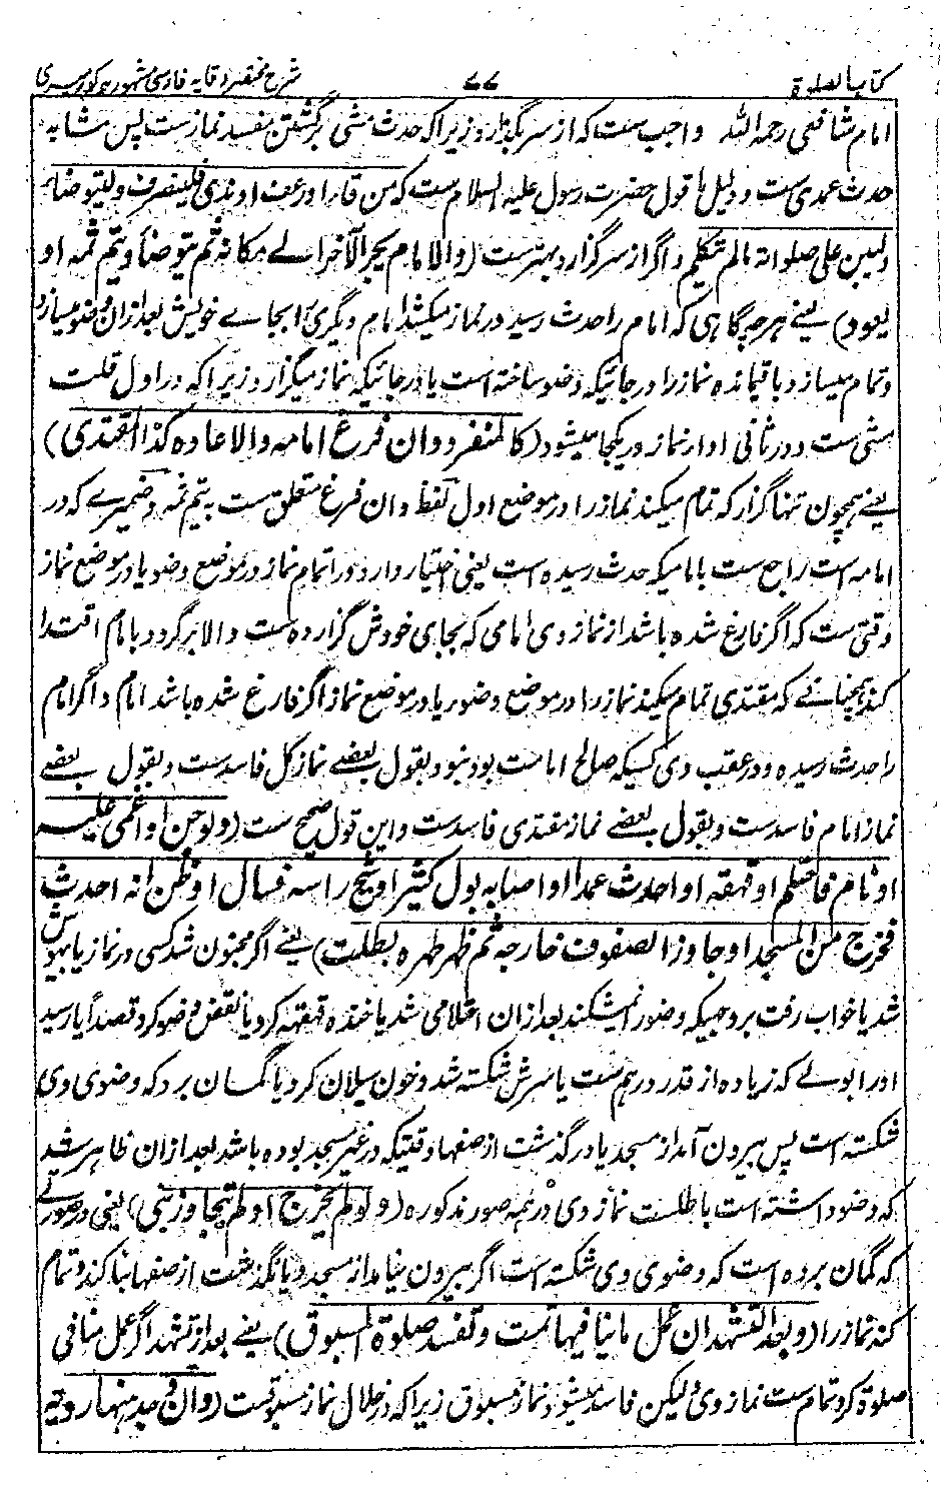 کتاب الصلوة ۷۷ شرح مختصر وقایه فارسی مشهور به کور میری
امام شافعی رحمه الله واجب ست که از سر بگذارد زیرا که حدث مشی برگشتن مفسد نماز ست پس مشابه
حدث عمدی ست و دلیل ما قول حضرت رسول علیه السلام ست که من قاء او رعف او مذی فلینصرف ولیتوضأ
ولیبن علی صلواته مالم یتکلم و اگر از سر گزارد بهتر ست (والامام یجر الآخر الے مکانه ثم یتوضأ و یتم ثمه او
یعود) یعنے هر چه گاهی که امام را حدث رسید در نماز میکشد امام دیگری را بجاے خویش بعد ازان وضو میسازد
و تمام میسازد باقیمانده نماز را در جائیکه وضو ساخته است یا در جائیکه نماز میگزارد زیرا که در اول قلت
مشی ست و در ثانی ادار نماز در یکجا میشود (کالمنفرد وان فرغ امامه والا عاده کذا المقتدی)
یعنے همچون تنها گزار که تمام میکند نماز را در موضع اول لفظ وان فرغ متعلق ست به یتم ثمه و ضمیرے که در
امامه است راجع ست با مامیکه حدث رسیده است یعنی اختیار دارد در اتمام نماز در موضع وضو یا در موضع نماز
وقتی ست که اگر فارغ شده باشد از نماز وی امامی که بجای خودش گزارده ست والا برگردد بامام اقتدا
کند همچنانے که مقتدی تمام میکند نماز را در موضع وضو ر یا در موضع نماز اگر فارغ شده باشد امام و اگر امام
را حدث رسیده و در عقب وی کسیکه صالح امامت بود نبود بقول بعضے نماز کل فاسد ست و بقول بعضے
نماز امام فاسد ست و بقول بعضے نماز مقتدی فاسد ست و این قول صحیح ست (ولو جن او اغمی علیه
او نام فاحتلم او قهقه او احدث عمدا او اصابه بول کثیر او شج راسه فسال او ظن انه احدث
فخرج من المسجد او جاوز الصفوف خارجه ثم ظهر طهره بطلت) یعنے اگر مجنون شد کسی در نماز یا بیهوش
شد یا خواب رفت بر وجهیکه وضو ر نمیشکند بعد ازان احتلامی شد یا خنده قهقهه کرد یا نقض وضو کرد قصداً یا رسید
او را بولے که زیاده از قدر درهم ست یا سرش شکسته شد و خون سیلان کرد یا گمان برد که وضوی وی
شکسته است پس بیرون آمد از مسجد یا در گذشت از صفها وقتیکه در غیر مسجد بوده باشد بعد ازان ظاهر شد
که وضو داشته است باطل ست نماز وی در همه صور مذکوره (ولو لم یخرج او لم یتجاوز بنی) یعنی در صورتے
که گمان برده است که وضوی وی شکسته است اگر بیرون نیامد از مسجد و یا نگذشت از صفها بنا کند و تمام
کند نماز را (و بعد التشهد ان عمل ما ینافیها تمت و تفسد صلوة المسبوق) یعنے بعد از تشهد اگر عمل منافی
صلوة کرد تمام ست نماز وی ولیکن فاسد میشود نماز مسبوق زیرا که در خلال نماز مسبوقست (وان وجد منها رویة